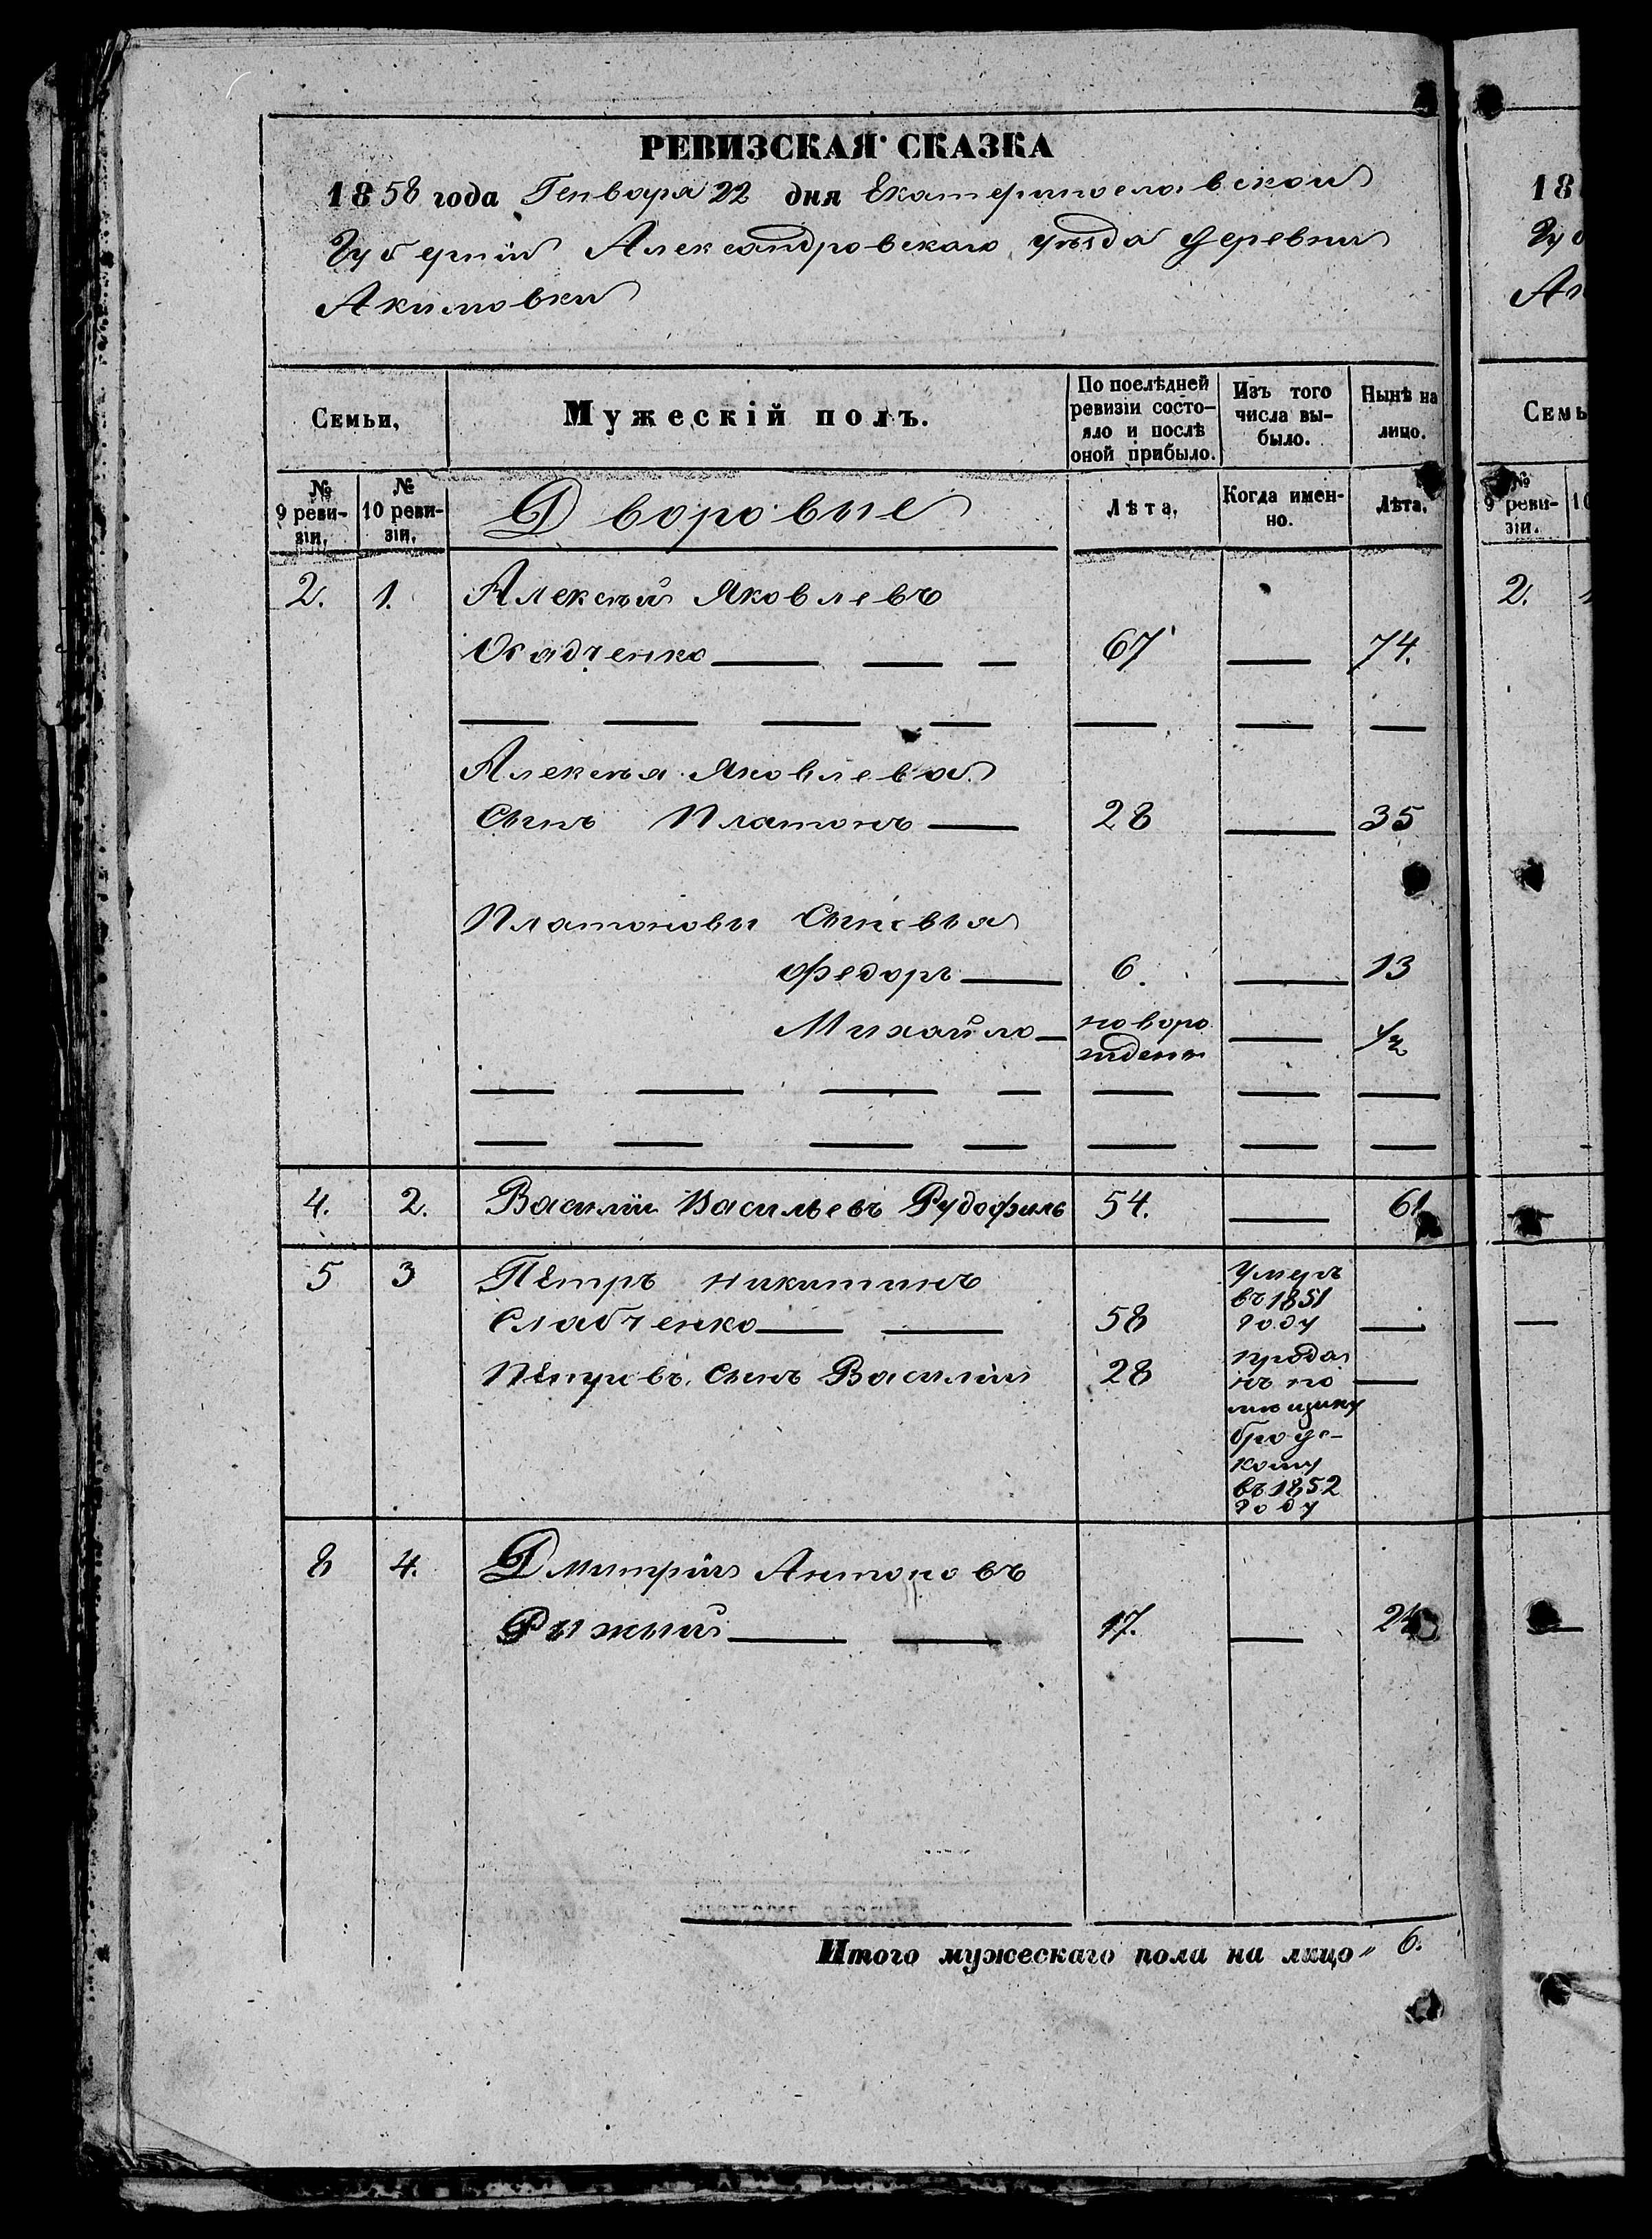 РЕВИЗСКАЯ СКАЗКА
1858 года Генваря 22 дня Екатеринославской
Губерніи Александровскаго уѣзда деревни
Акимовки
Семьи,
Мужескій полъ.
По послѣдней
ревизіи состо-
яло и послѣ
оной прибыло.
Изъ того
числа вы-
было.
Нынѣ на
лицо.
№
9 реви-
зіи.
№
10 реви-
зіи.
Дворовые
Лѣта,
Когда имен-
но.
Лѣта.
2. 1. Алексѣй Яковлевъ
Осадченко 67 74.
Алексѣя Яковлева
Сынъ Платонъ 28 35
Платоновы Сыновья
Федоръ 6. 13
Михайло новоро
жденъ 1/2
4. 2. Василій Васильевъ Рудофиль 54. 61
5 3 Пётръ Никитинъ
Слабченко 58
Умеръ
въ 1851
году
Пётровъ Сынъ Василій 28
прода
нъ по
мѣщику
Бродс-
кому
въ 1852
году
8 4. Дмитрій Антоновъ
Рыжый 17. 24
Итого мужескаго пола на лицо 6.
18
Губ
Ак
Семь
№
9 реви-
зіи.
10
2.